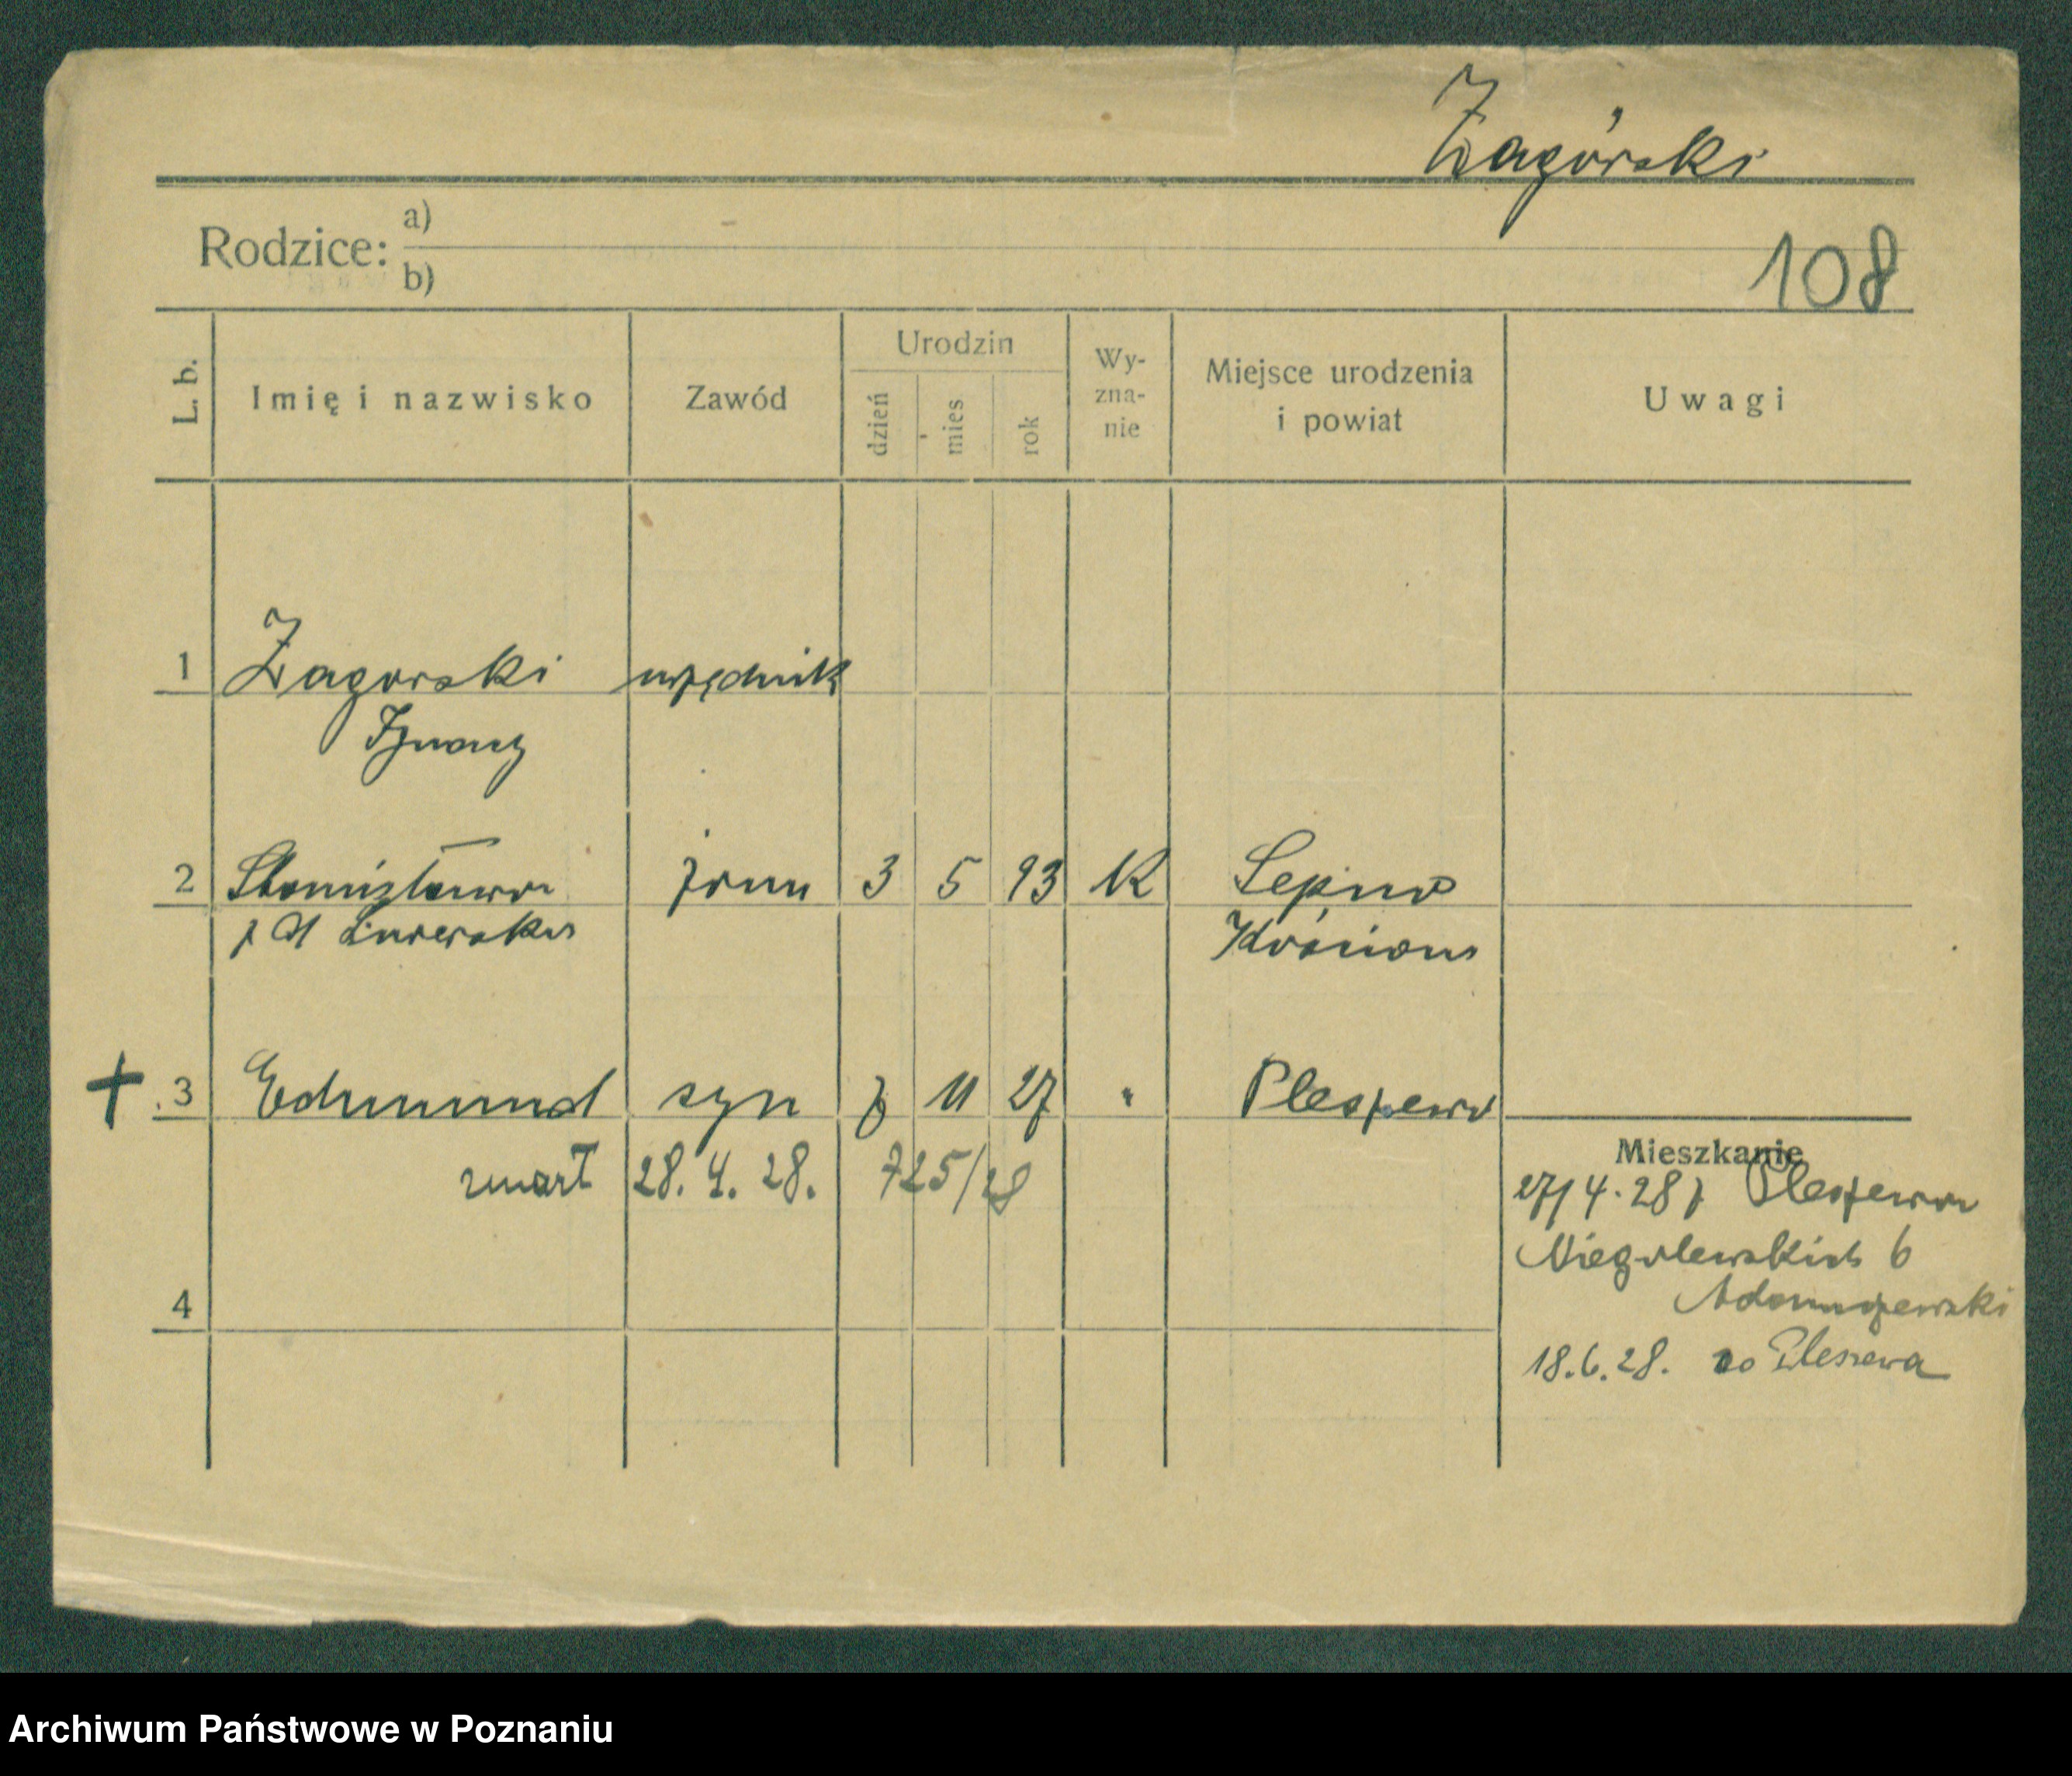 Zagórski
Rodzice: a)
b)
108
L. b. Imię i nazwisko Zawód Urodzin dzień mies rok Wy-zna-nie Miejsce urodzenia i powiat Uwagi
1 Zagorski urzędnik
Ignacy
2 Stanisława żona 3 5 93 K Sepno
z d Kościan
3 Edmund syn 7 11 27 " Pleszew
zmarł 28. 4. 28. 725/28
Mieszkanie
27/4.28 z Pleszewa
Niegolewskich 6
Adamszewski
4
18.6.28. do Pleszewa
Archiwum Państwowe w Poznaniu